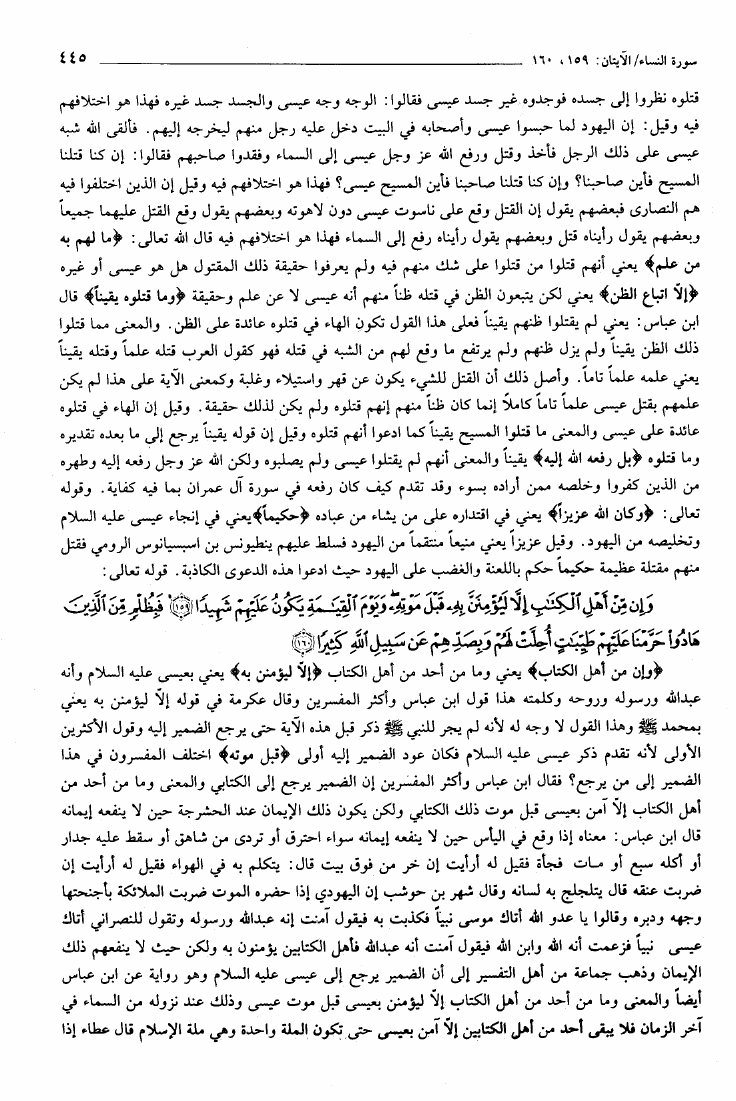 سورة النساء/ الآيتان: ١٥٩، ١٦٠ ٤٤٥
قتلوه نظروا إلى جسده فوجدوه غير جسد عيسى فقالوا: الوجه وجه عيسى والجسد جسد غيره فهذا هو اختلافهم
فيه وقيل: إن اليهود لما حبسوا عيسى وأصحابه في البيت دخل عليه رجل منهم ليخرجه إليهم. فألقى الله شبه
عيسى على ذلك الرجل فأخذ وقتل ورفع الله عز وجل عيسى إلى السماء وفقدوا صاحبهم فقالوا: إن كنا قتلنا
المسيح فأين صاحبنا؟ وإن كنا قتلنا صاحبنا فأين المسيح عيسى؟ فهذا هو اختلافهم فيه وقيل إن الذين اختلفوا فيه
هم النصارى فبعضهم يقول إن القتل وقع على ناسوت عيسى دون لاهوته وبعضهم يقول وقع القتل عليهما جميعاً
وبعضهم يقول رأيناه قتل وبعضهم يقول رأيناه رفع إلى السماء فهذا هو اختلافهم فيه قال الله تعالى: ﴿ما لهم به
من علم﴾ يعني أنهم قتلوا من قتلوا على شك منهم فيه ولم يعرفوا حقيقة ذلك المقتول هل هو عيسى أو غيره
﴿إلّا اتباع الظن﴾ يعني لكن يتبعون الظن في قتله ظناً منهم أنه عيسى لا عن علم وحقيقة ﴿وما قتلوه يقيناً﴾ قال
ابن عباس: يعني لم يقتلوا ظنهم يقيناً فعلى هذا القول تكون الهاء في قتلوه عائدة على الظن. والمعنى مما قتلوا
ذلك الظن يقيناً ولم يزل ظنهم ولم يرتفع ما وقع لهم من الشبه في قتله فهو كقول العرب قتله علماً وقتله يقيناً
يعني علمه علماً تاماً. وأصل ذلك أن القتل للشيء يكون عن قهر واستيلاء وغلبة وكمعنى الآية على هذا لم يكن
علمهم بقتل عيسى علماً تاماً كاملاً إنما كان ظناً منهم إنهم قتلوه ولم يكن لذلك حقيقة. وقيل إن الهاء في قتلوه
عائدة على عيسى والمعنى ما قتلوا المسيح يقيناً كما ادعوا أنهم قتلوه وقيل إن قوله يقيناً يرجع إلى ما بعده تقديره
وما قتلوه ﴿بل رفعه الله إليه﴾ يقيناً والمعنى أنهم لم يقتلوا عيسى ولم يصلبوه ولكن الله عز وجل رفعه إليه وطهره
من الذين كفروا وخلصه ممن أراده بسوء وقد تقدم كيف كان رفعه في سورة آل عمران بما فيه كفاية. وقوله
تعالى: ﴿وكان الله عزيزاً﴾ يعني في اقتداره على من يشاء من عباده ﴿حكيماً﴾يعني في إنجاء عيسى عليه السلام
وتخليصه من اليهود. وقيل عزيزاً يعني منيعاً منتقماً من اليهود فسلط عليهم ينطيونس بن اسبسيانوس الرومي فقتل
منهم مقتلة عظيمة حكيماً حكم باللعنة والغضب على اليهود حيث ادعوا هذه الدعوى الكاذبة. قوله تعالى:
وَإِن مِّنْ أَهْلِ ٱلْكِتَٰبِ إِلَّا لَيُؤْمِنَنَّ بِهِۦ قَبْلَ مَوْتِهِۦ ۖ وَيَوْمَ ٱلْقِيَٰمَةِ يَكُونُ عَلَيْهِمْ شَهِيدًا ﴿١٥٩﴾ فَبِظُلْمٍ مِّنَ ٱلَّذِينَ
هَادُوا۟ حَرَّمْنَا عَلَيْهِمْ طَيِّبَٰتٍ أُحِلَّتْ لَهُمْ وَبِصَدِّهِمْ عَن سَبِيلِ ٱللَّهِ كَثِيرًا ﴿١٦٠﴾
﴿وإن من أهل الكتاب﴾ يعني وما من أحد من أهل الكتاب ﴿إلّا ليؤمنن به﴾ يعني بعيسى عليه السلام وأنه
عبدالله ورسوله وروحه وكلمته هذا قول ابن عباس وأكثر المفسرين وقال عكرمة في قوله إلّا ليؤمنن به يعني
بمحمد ﷺ وهذا القول لا وجه له لأنه لم يجر للنبي ﷺ ذكر قبل هذه الآية حتى يرجع الضمير إليه وقول الأكثرين
الأولى لأنه تقدم ذكر عيسى عليه السلام فكان عود الضمير إليه أولى ﴿قبل موته﴾ اختلف المفسرون في هذا
الضمير إلى من يرجع؟ فقال ابن عباس وأكثر المفسرين إن الضمير يرجع إلى الكتابي والمعنى وما من أحد من
أهل الكتاب إلّا آمن بعيسى قبل موت ذلك الكتابي ولكن يكون ذلك الإيمان عند الحشرجة حين لا ينفعه إيمانه
قال ابن عباس: معناه إذا وقع في اليأس حين لا ينفعه إيمانه سواء احترق أو تردى من شاهق أو سقط عليه جدار
أو أكله سبع أو مات فجأة فقيل له أرأيت إن خر من فوق بيت قال: يتكلم به في الهواء فقيل له أرأيت إن
ضربت عنقه قال يتلجلج به لسانه وقال شهر بن حوشب إن اليهودي إذا حضره الموت ضربت الملائكة بأجنحتها
وجهه ودبره وقالوا يا عدو الله أتاك موسى نبياً فكذبت به فيقول آمنت إنه عبدالله ورسوله وتقول للنصراني أتاك
عيسى نبياً فزعمت أنه الله وابن الله فيقول آمنت أنه عبدالله فأهل الكتابين يؤمنون به ولكن حيث لا ينفعهم ذلك
الإيمان وذهب جماعة من أهل التفسير إلى أن الضمير يرجع إلى عيسى عليه السلام وهو رواية عن ابن عباس
أيضاً والمعنى وما من أحد من أهل الكتاب إلّا ليؤمنن بعيسى قبل موت عيسى وذلك عند نزوله من السماء في
آخر الزمان فلا يبقى أحد من أهل الكتابين إلّا آمن بعيسى حتى تكون الملة واحدة وهي ملة الإسلام قال عطاء إذا